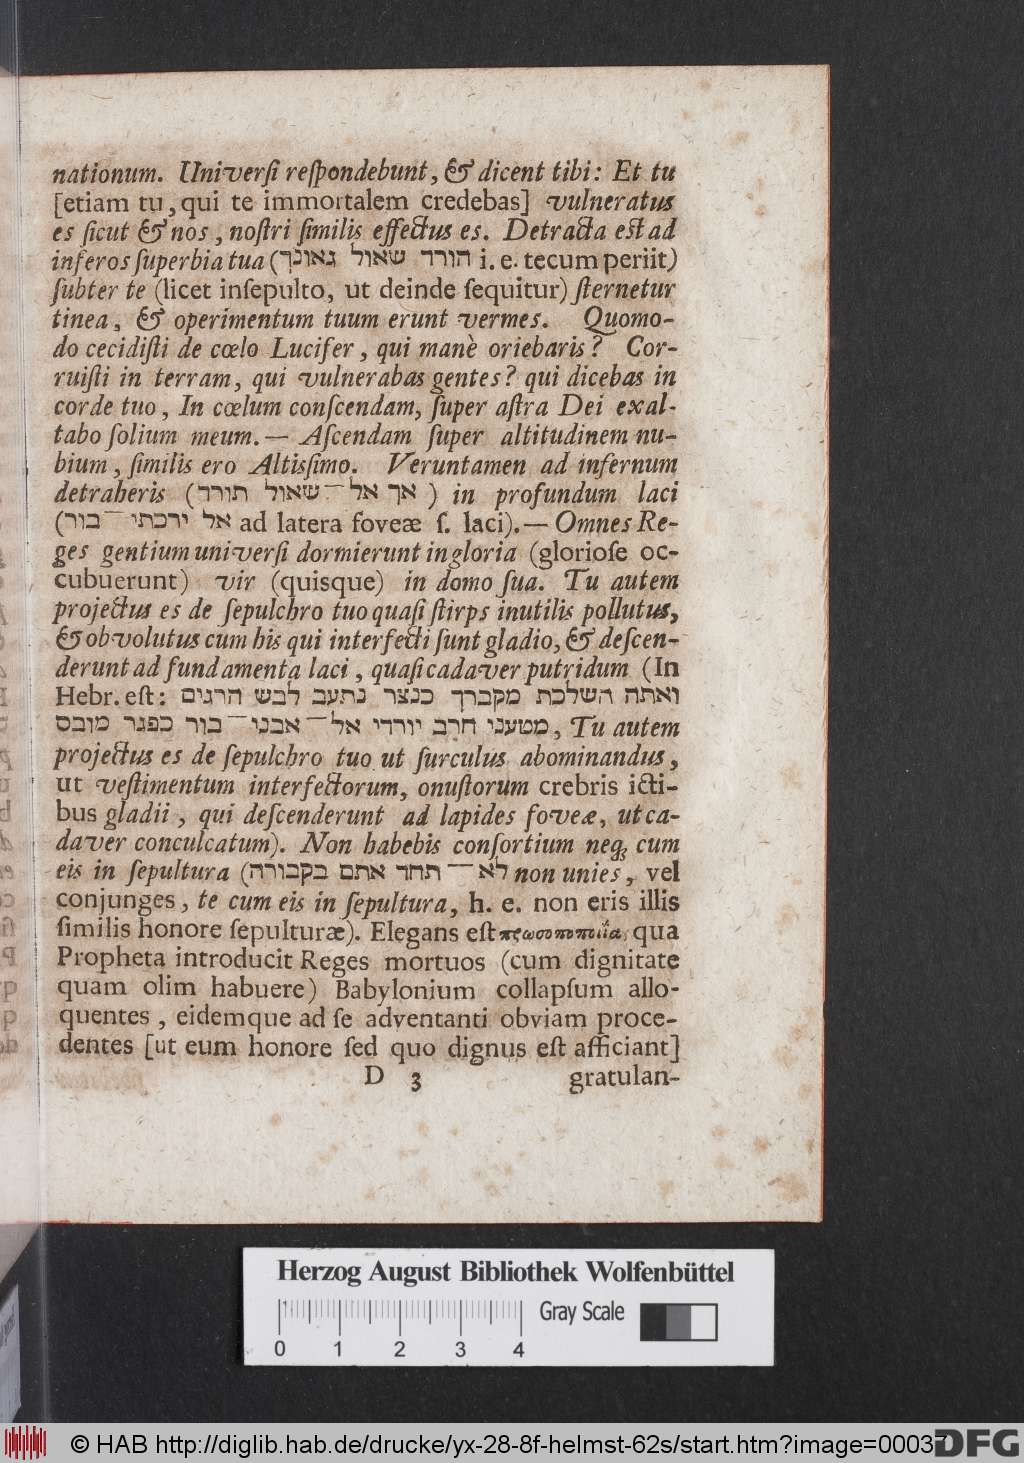 nationum. Universi respondebunt, & dicent tibi: Et tu
[etiam tu, qui te immortalem credebas] vulneratus
es sicut & nos, nostri similis effectus es. Detracta est ad
inferos superbia tua (הורד שאול גאונך i. e. tecum periit)
subter te (licet insepulto, ut deinde sequitur) sternetur
tinea, & operimentum tuum erunt vermes. Quomo-
do cecidisti de cœlo Lucifer, qui manè oriebaris? Cor-
ruisti in terram, qui vulnerabas gentes? qui dicebas in
corde tuo, In cœlum conscendam, super astra Dei exal-
tabo solium meum.— Ascendam super altitudinem nu-
bium, similis ero Altissimo. Veruntamen ad infernum
detraheris (אך אל־שאול תורד) in profundum laci
(אל ירכתי־בור ad latera foveæ s. laci).— Omnes Re-
ges gentium universi dormierunt in gloria (gloriose oc-
cubuerunt) vir (quisque) in domo sua. Tu autem
projectus es de sepulchro tuo quasi stirps inutilis pollutus,
& obvolutus cum his qui interfecti sunt gladio, & descen-
derunt ad fundamenta laci, quasi cadaver putridum (In
Hebr. est: ואתה השלכת מקברך כנצר נתעב לבש הרגים
מטעני חרב יורדי אל־אבני־בור כפגר מובס, Tu autem
projectus es de sepulchro tuo ut surculus abominandus,
ut vestimentum interfectorum, onustorum crebris icti-
bus gladii, qui descenderunt ad lapides foveæ, ut ca-
daver conculcatum). Non habebis consortium neq; cum
eis in sepultura (לא־תחד אתם בקבורה non unies, vel
conjunges, te cum eis in sepultura, h. e. non eris illis
similis honore sepulturæ). Elegans est προσωποποιΐα, qua
Propheta introducit Reges mortuos (cum dignitate
quam olim habuere) Babylonium collapsum allo-
quentes, eidemque ad se adventanti obviam proce-
dentes [ut eum honore sed quo dignus est afficiant]
D 3 gratulan-
Herzog August Bibliothek Wolfenbüttel
Gray Scale
0 1 2 3 4
© HAB http://diglib.hab.de/drucke/yx-28-8f-helmst-62s/start.htm?image=00037
DFG